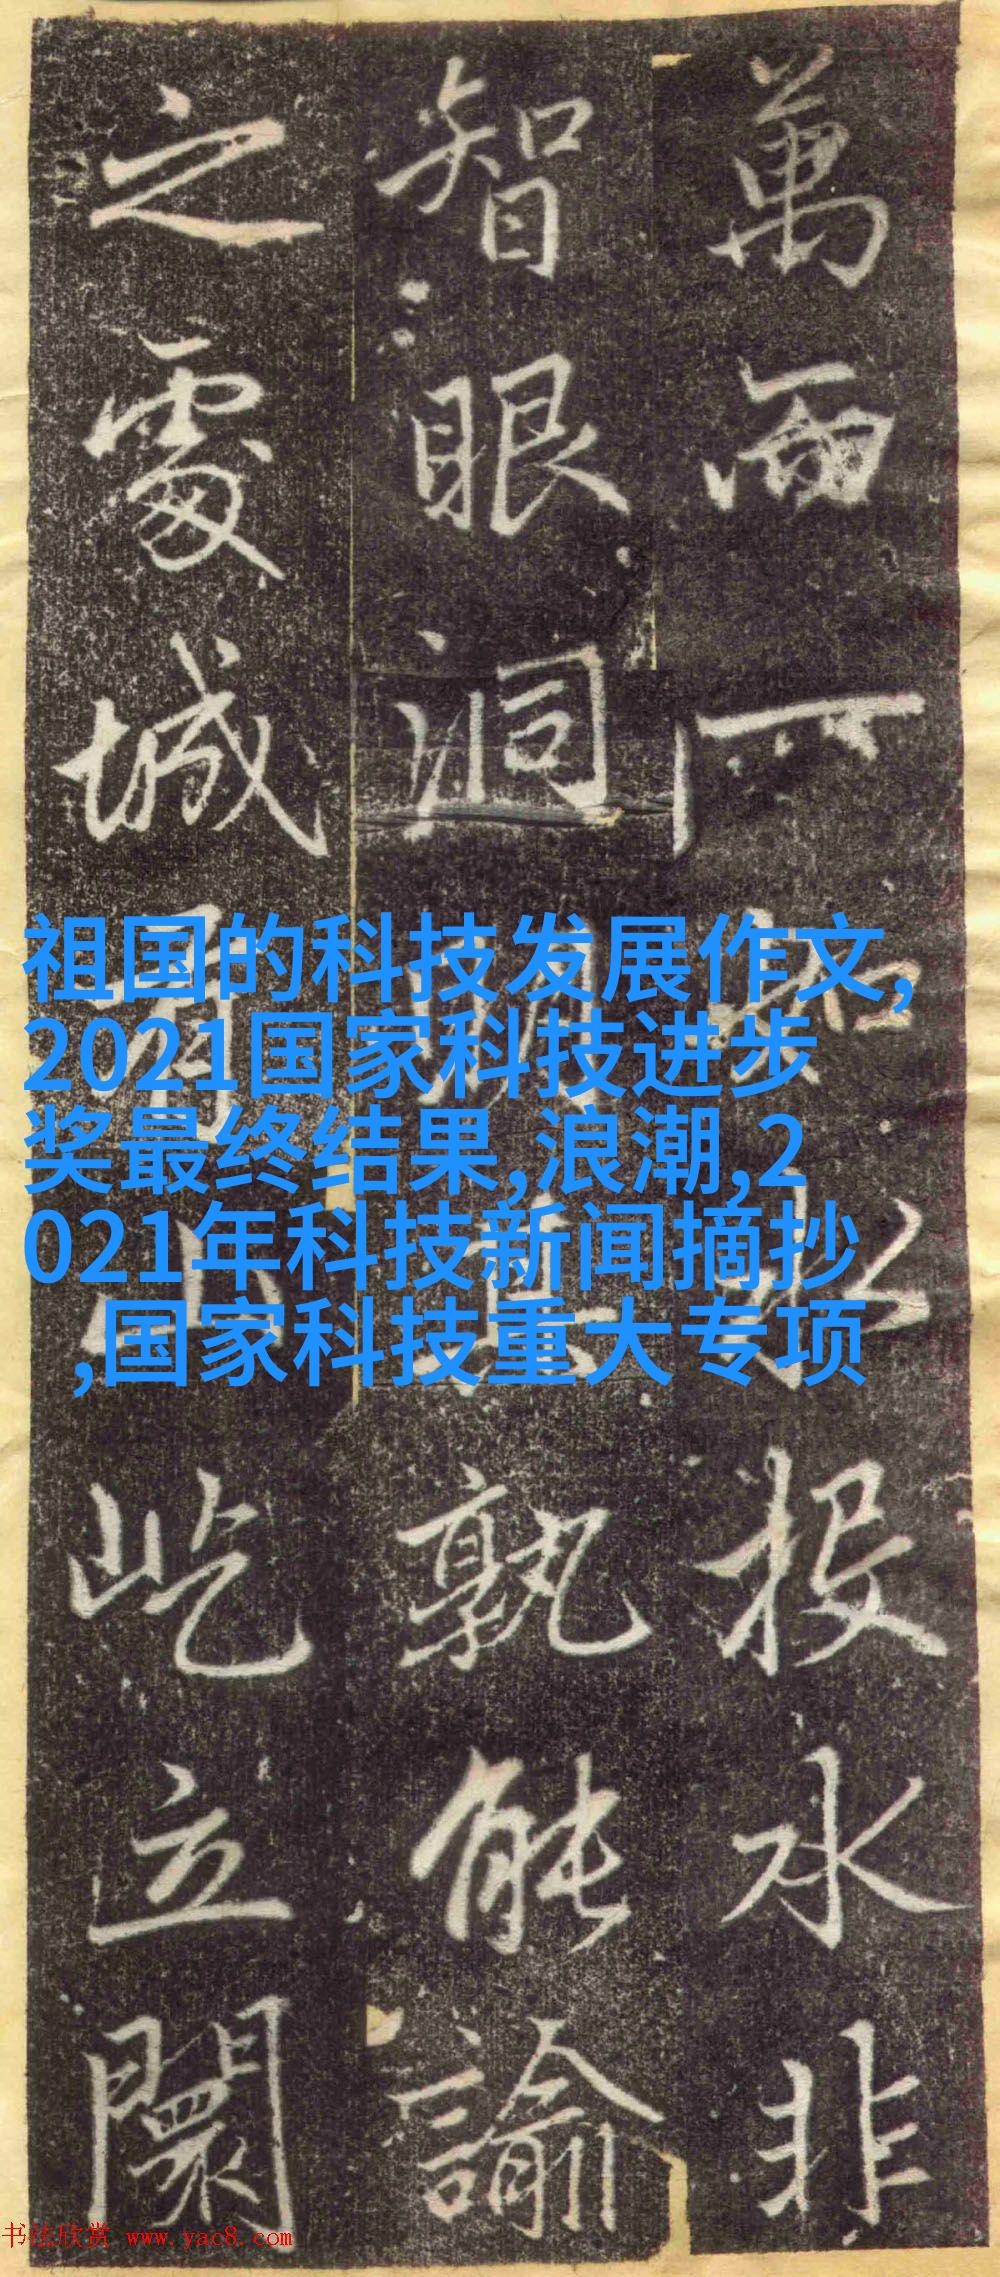 萬投水非
智眼洞孰能諭
之處城屹立闤
祖国的科技发展作文,
2021国家科技进步
奖最终结果,浪潮,2
021年科技新闻摘抄
,国家科技重大专项
书法欣赏 www.yac8.com